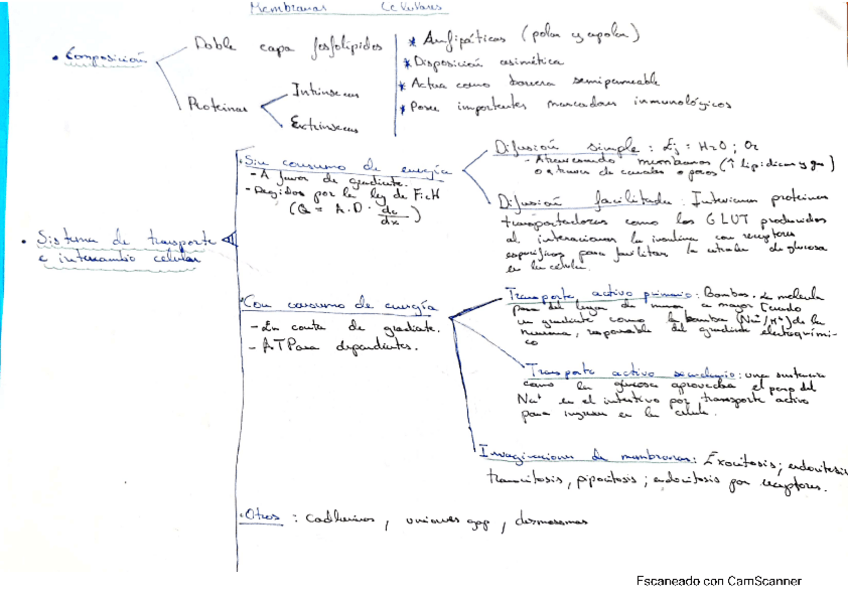 Membranas Celulares
• Composición
Doble capa fosfolípidos
Proteínas
Intrínsecas
Extrínsecas
* Anfipáticas (polar y apolar)
* Disposición asimética
* Actua como barrera semipermeable
* Posee importantes marcadores inmunológicos
• Sistema de transporte
e intercambio celular
• Sin consumo de energía
- A favor de gradiente.
- Regidos por la ley de Fick
(Q = A.D. dc/dx)
Difusión simple: Ej = H2O; O2
- Atravesando membranas (↑ lipídicas y )
o a traves de canales o poros
Difusión facilitada: Intervienen proteínas
transportadoras como los GLUT producidos
al interaccionar la insulina con receptores
específicos para facilitar la entrada de glucosa
en la célula.
• Con consumo de energía
- En contra de gradiente.
- ATPasa dependientes.
Transporte activo primario: Bombas. La molécula
pasa del lugar de menor a mayor
un gradiente como la bomba de la
neurona, responsable del gradiente electroquími-
co
Transporte activo secundario: una sustancia
como la glucosa aprovecha el paso del
Na+ en el intestino por transporte activo
para ingresar en la célula.
Invaginaciones de membranas: Exocitosis; endocitosis
transcitosis, pipocitosis; endocitosis por receptores.
• Otros: cadherinas, uniones gap, desmosomas
Escaneado con CamScanner